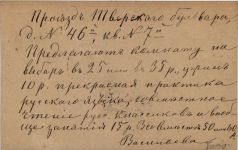 Проѣздъ Тверского бульвара,
д. № 46й, кв. № 7й
Предлагаютъ комнату на
выборъ въ 25 или въ 35 р.,
10 р. прекрасная практика
русскаго языка, совмѣстное
чтеніе русс. классиковъ и
занятія 15 р. 50